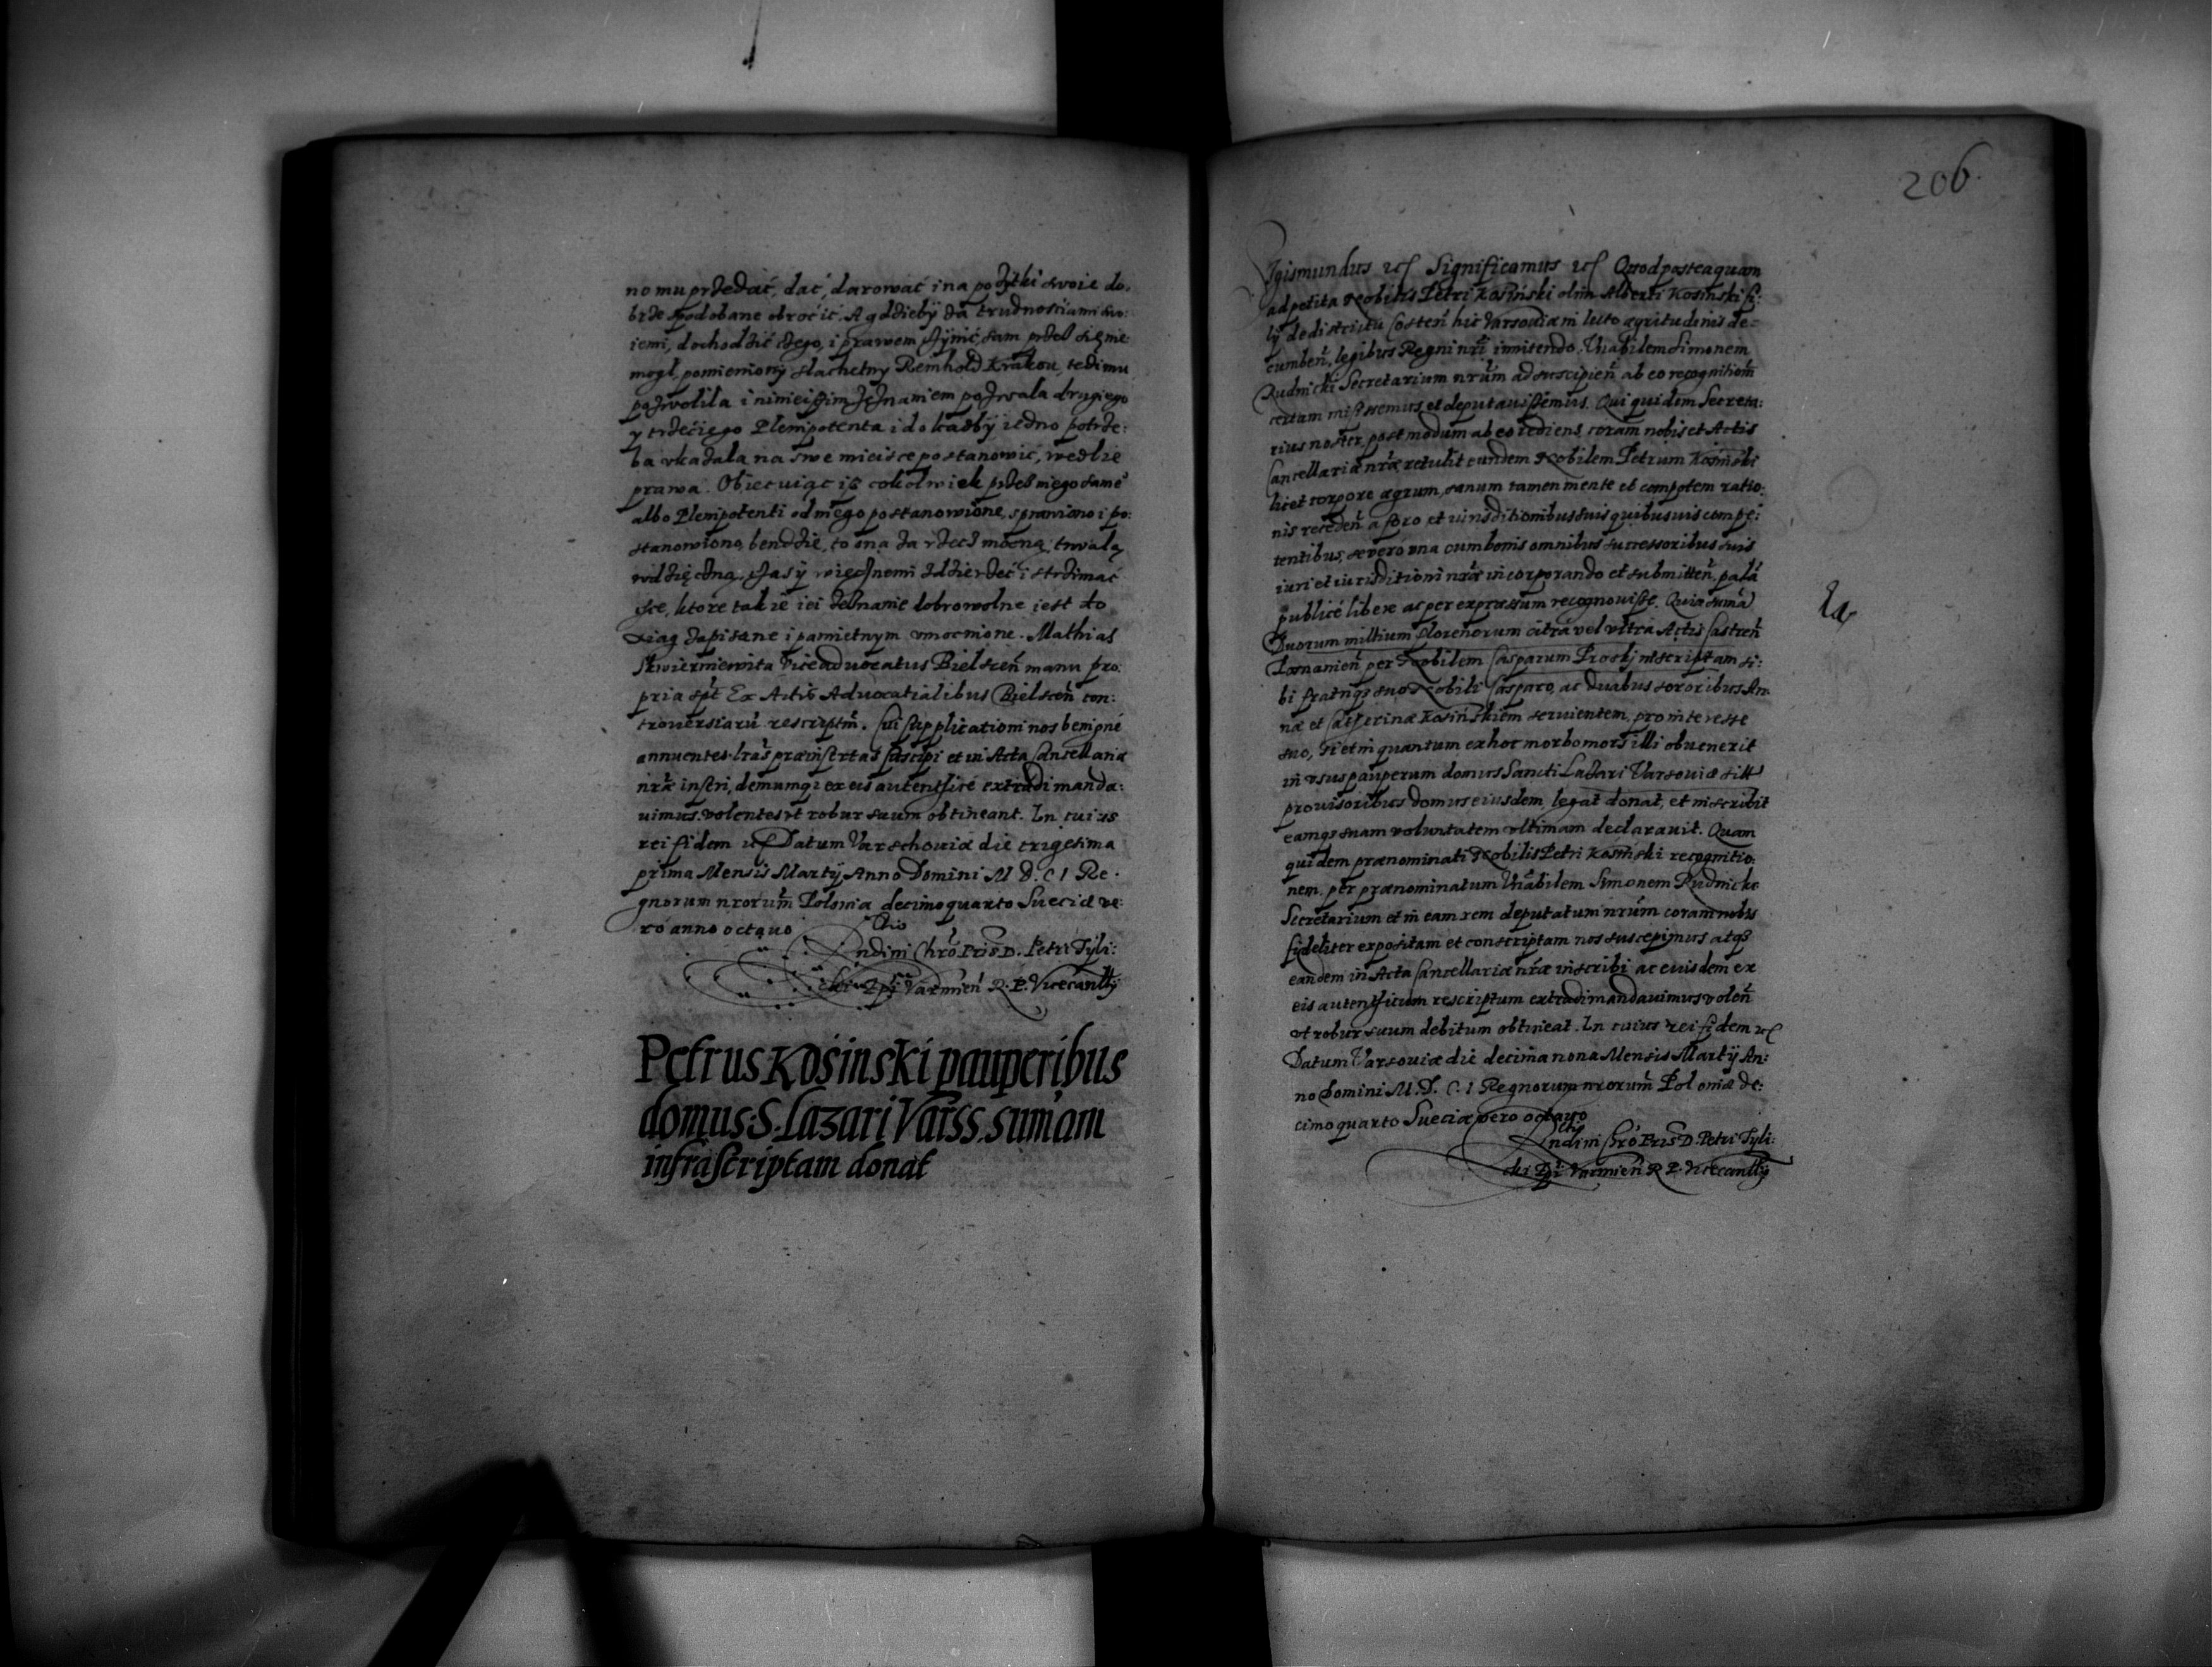 no mu przedać, dać, darować i na pożytki swoie do,
brze spodobane obroćić. A gdzieby za trudnosciami swo:
iemi, dochodzić tego, i prawem czynić, sam przes się nie:
mogł, pomieniony slachetny Remhold Krakou, tedi mu
pozwolila i ninieiszim zeznaniem pozwala drugiego
y trzeciego Plenipotenta i do kazby iedno potrze:
ba vkazala na swe mieisce postanowić, wedlie
prawa. Obiecuiąc iż cokolwiek przes niego same°
albo Plenipotenti od niego postanowione, sprawiono i po:
stanowiono, bendzie, to ona za rzecz mocną, trwalą
wdzięczną, czasy wiecznemi zdzierżeć i strzimać
chce, ktore takie iei zeznanie dobrowolne iest do
xiąg zapisane i pamietnym vmocnione. Mathias
Skwierniewita Viceaduocatus Bielscen̄ manu pro:
pria sp̄t Ex Actis Aduocatialibus Bielscen̄ con:
trouersiarū rescriptm̄. Cui supplicationi nos benigné
annuentes lr̄as præinsertas suscipi et in Acta Cancellariæ
nr̄æ inseri, demumq; ex eis autenthicé extradi manda:
uimus. volentes vt robur suum obtineant. In cuius
rei fidem ꝛcʃ Datum Varschouiæ die trigesima
prima Mensis Martij Anno Domini M D. C I Re.
gnorum nrorum̄ Poloniæ decimoquarto Sueciæ ve:
ró anno octauo
Rndini Chr̄o Pris D. Petri Tyli:
cki Ep̄i Varmien̄ R. P. Vicecancllrij
Petrus Kośinski pauperibus
domus S. Lazari Varss. sum̄am
infrascriptam donat
206.
Sigismundus ꝛcʃ Significamus ꝛcʃ Quod posteaquam
ad petita Nobilis Petri Kosinski olim Alberti Kosinski fi:
lij de districtu Costen̄ hic Varsouiæ in lecto ægritudinis de:
cumben̄, legibus Regni nr̄i innitendo. Vn̄abilem Simonem
Rudnicki Secretarium nrūm ad suscipien̄ ab eo recognitiom̄
certam missemus et deputauissemus. Qui quidem Secreta:
rius noster, post modum ab eo rediens, coram nobis et Actis
Cancellariæ nr̄æ retulit eundem Nobilem Petrum Kosinski
licet corpore ægrum, sanum tamen mente et compotem ratio:
nis receden̄ a foro et iurisditionibus suis quibusuis compe:
tentibus, se veró vna cum bonis omnibus successoribus suis
iuri et iurisditioni nr̄æ incorporando et submitten̄, palā
publicé libere ac per expressum recognouisse. Quia sum̄ā
Duorum millium florenorum citrà vel vltra Actis Castren̄
Posnanien̄ per Nobilem Casparum Proski inscriptam si:
bi fratriq; suo Nobili Casparo, ac duabus sororibus An:
næ et Catherinæ Kosinskiem seruientem, pro interesse
suo, si et in quantum ex hoc morbo mors illi obuenerit
in vsus pauperum domus Sancti Lazari Varsouiæ sitæ
prouisoribus domus eiusdem, legat donat, et inscribit
eamq; suam voluntatem vltimam declarauit. Quam
quidem prænominati Nobilis Petri Kosinski recognitio:
nem, per prænominatum Vn̄abilem Simonem Rudnicki
Secretarium et in eam rem deputatum nrūm coram nobis
fideliter expositam et conscriptam nos suscepimus atq;
eandem in Acta Cancellariæ nr̄æ inscribi ac eiusdem ex
eis autenthicum rescriptum extradi mandauimus volen̄
vt robur suum debitum obtineat. In cuius rei fidem ꝛcʃ
Datum Varsouiæ die decima nona Mensis Martij An:
no Domini M. D. C. I Regnorum nrorum̄ Poloniæ de:
cimoquarto Sueciæ vero octauo
Rndini Chr̄o Pris D. Petri Tyli:
cki Ep̄i Varmien̄ R P. Vicecancllrij